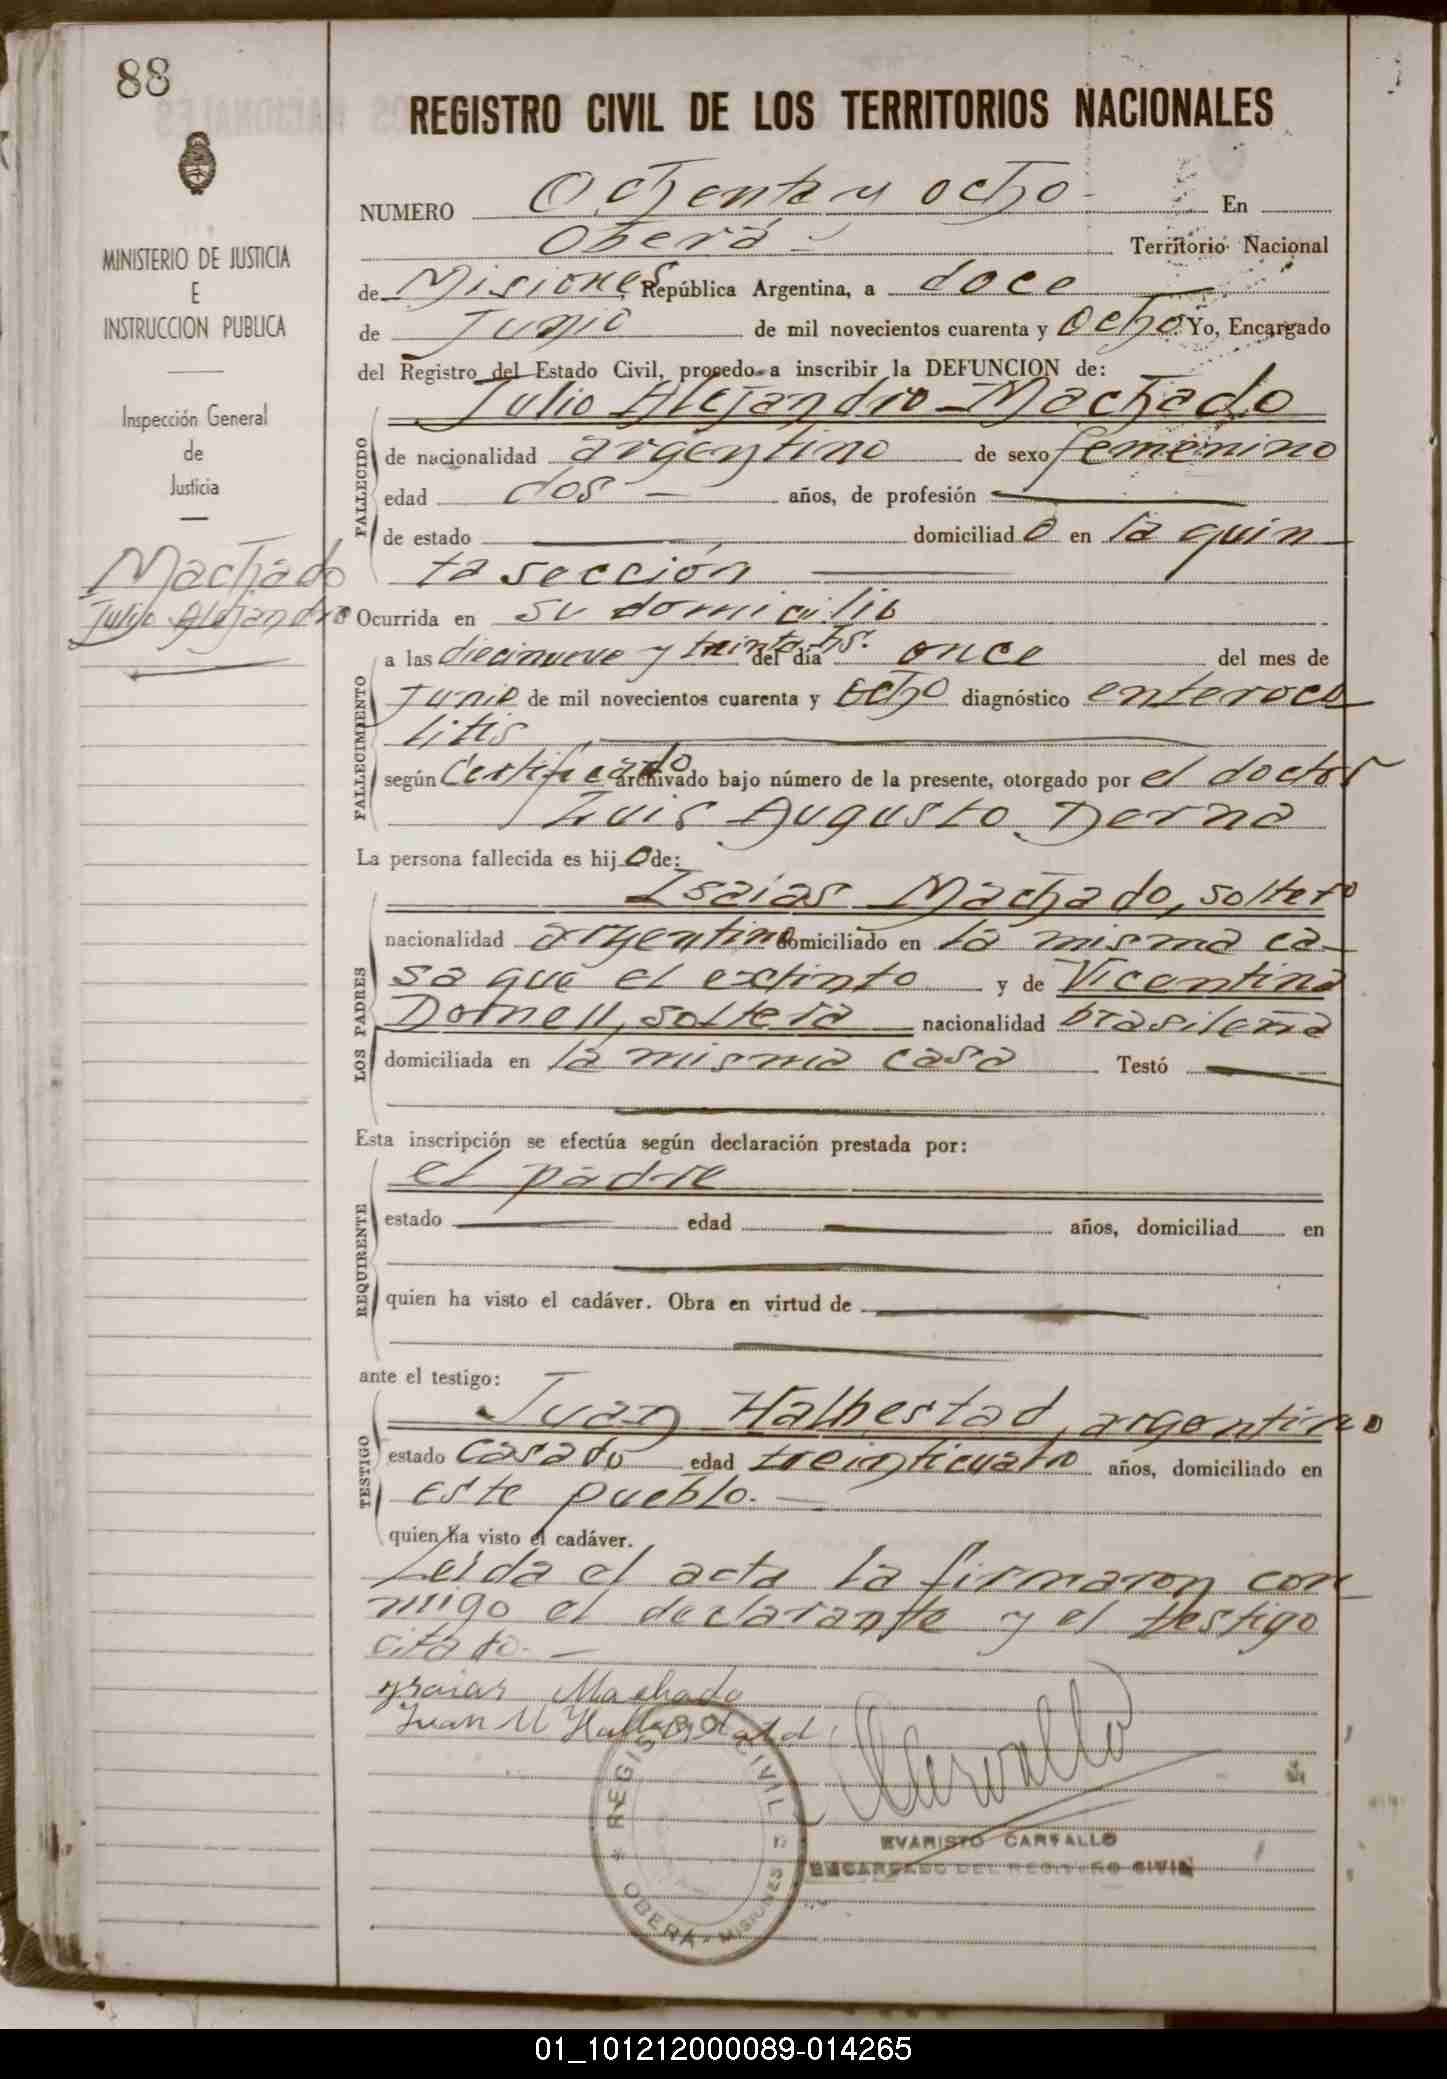 88
MINISTERIO DE JUSTICIA
E
INSTRUCCION PUBLICA
Inspección General
de
Justicia
Machado
Julio Alejandro
REGISTRO CIVIL DE LOS TERRITORIOS NACIONALES
NUMERO Ochenta y ocho - En
Oberá - Territorio Nacional
de Misiones República Argentina, a doce
de Junio de mil novecientos cuarenta y ocho Yo, Encargado
del Registro del Estado Civil, procedo a inscribir la DEFUNCION de:
Julio Alejandro Machado
FALLECIDO
de nacionalidad argentino de sexo femenino
edad dos - años, de profesión
de estado domiciliad o en la quin
ta sección
Ocurrida en su domicilio
FALLECIMIENTO
a las diecinueve y treinta hs. del día once del mes de
Junio de mil novecientos cuarenta y ocho diagnóstico enteroco
litis
según Certificado archivado bajo número de la presente, otorgado por el doctor
Luis Augusto Derna
La persona fallecida es hij o de:
LOS PADRES
Isaias Machado, soltero
nacionalidad argentino domiciliado en la misma ca-
sa que el extinto y de Vicentina
Dornell, soltera nacionalidad brasileña
domiciliada en la misma casa Testó
Esta inscripción se efectúa según declaración prestada por:
REQUIRENTE
el padre
estado edad años, domiciliad en
quien ha visto el cadáver. Obra en virtud de
ante el testigo:
TESTIGO
Juan Halbestad, argentino
estado casado edad treinticuatro años, domiciliado en
este pueblo. -
quien ha visto el cadáver.
Leída el acta la firmaron con
migo el declarante y el testigo
citado. -
Machado
Juan M
Carvallo
REGISTRO CIVIL
OBERA - MISIONES
EVARISTO CARVALLO
ENCARGADO DEL REGISTRO CIVIL
01_101212000089-014265